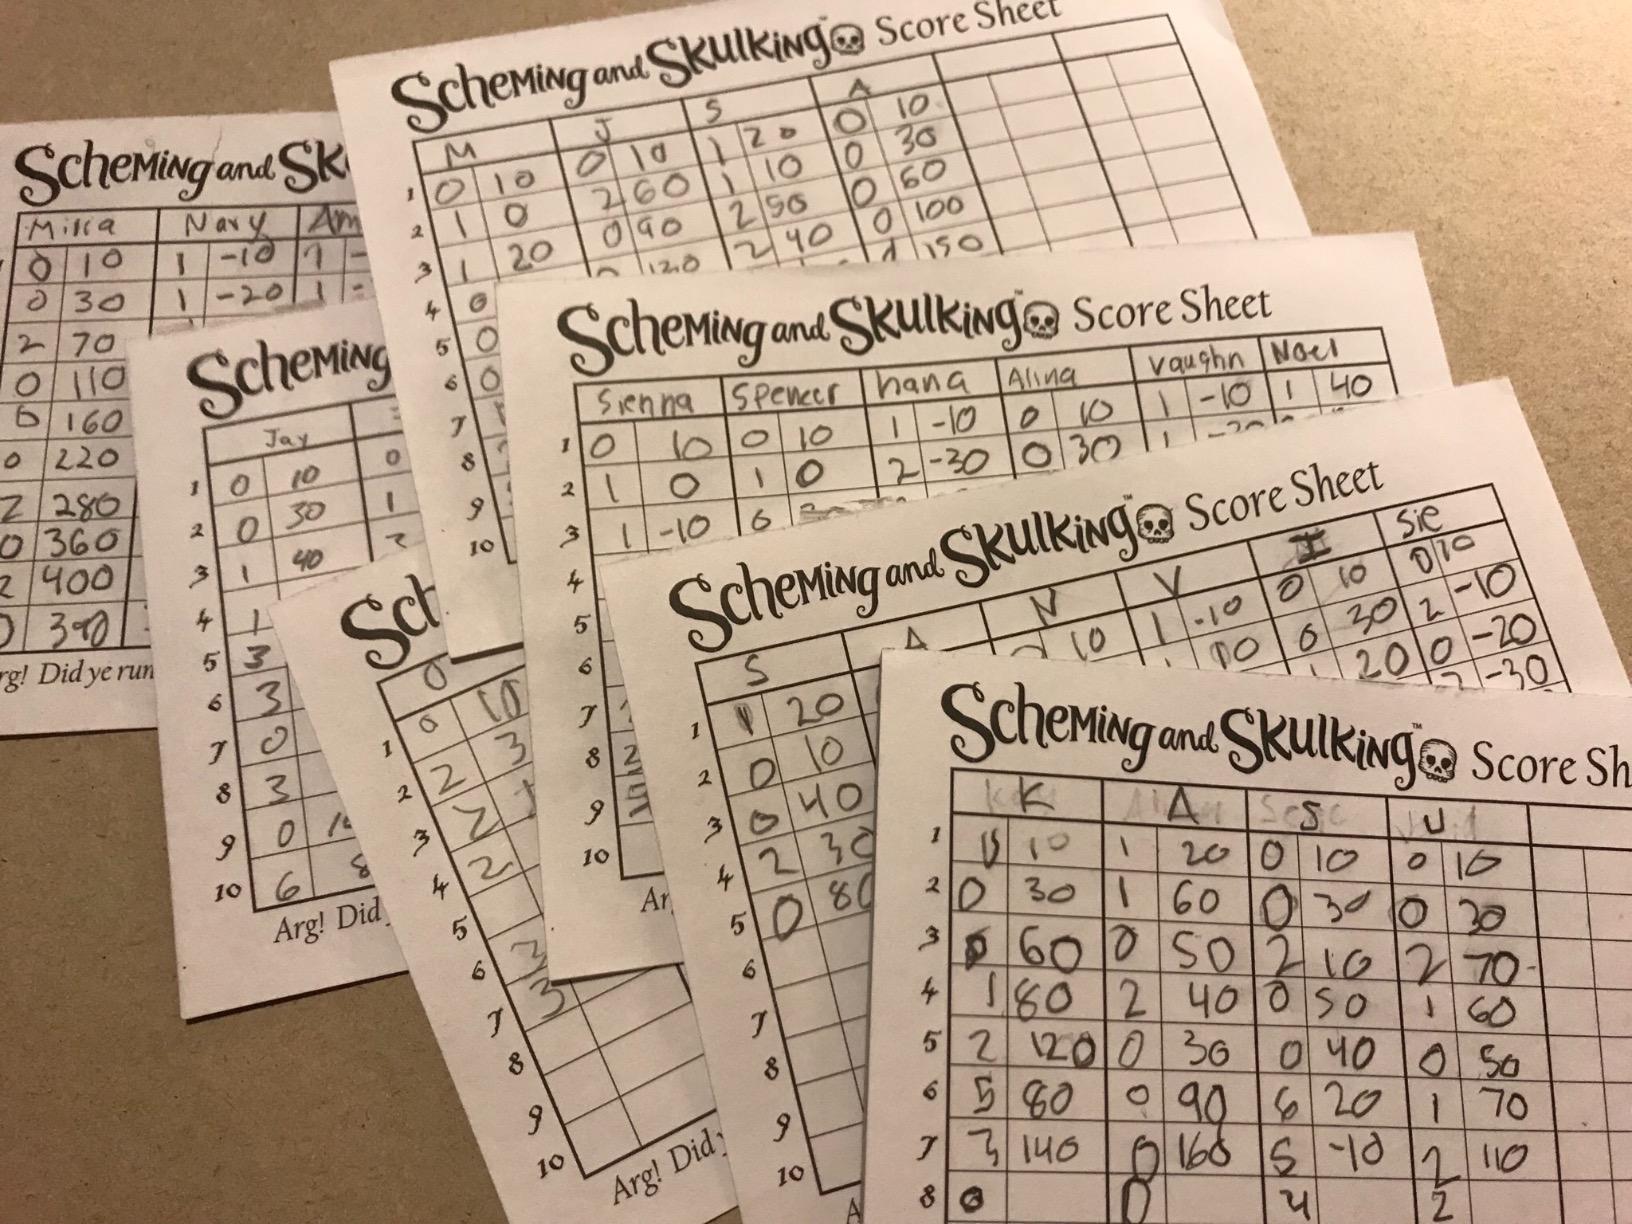 Scheming and Skulking™ Score Sheet
M J S A
1 0 10 0 10 1 20 0 10
2 1 0 2 60 1 10 0 30
3 1 20 0 90 2 50 0 60
4 0 120 2 40 0 100
5 0 150
6 0
7
8
9
10
Scheming and Sk
Milla Navy Am
0 10 1 -10 1 -
0 30 1 -20 1 -
2 70
0 110
0 160
0 220
2 280
0 360
2 400
0 390
rg! Did ye run
Scheming
Jay
1 0 10 0
2 0 30 1
3 1 40 2
4 1
5 3
6 3
7 0
8 3
9 0
10 6 8
Arg! Did
Scheming and Skulking™ Score Sheet
Sienna Spencer hana Alina Vaughn Noel
1 0 10 0 10 1 -10 0 10 1 -10 1 40
2 1 0 1 0 2 -30 0 30 1
3 1 -10 6
4
5
6
7
8 2
9
10
Ar
Sch
O
1 0 10
2 2 3
3 2
4 2
5
6 3
7 3
8
9
10
Arg! Did y
Scheming and Skulking™ Score Sheet
S A N V I Sie
1 1 20 10 1 -10 0 10 0 10
2 0 10 0 30 2 -10
3 0 40 20 0 -20
4 2 30 -30
5 0 80
6
7
8
9
10
A
Scheming and Skulking™ Score Sh
K A S J
1 0 10 1 20 0 10 0 10
2 0 30 1 60 0 30 0 30
3 0 60 0 50 2 10 2 70
4 1 80 2 40 0 50 1 60
5 2 120 0 30 0 40 0 50
6 5 80 0 90 6 20 1 70
7 3 140 0 160 5 -10 2 110
8 0 0 4 2